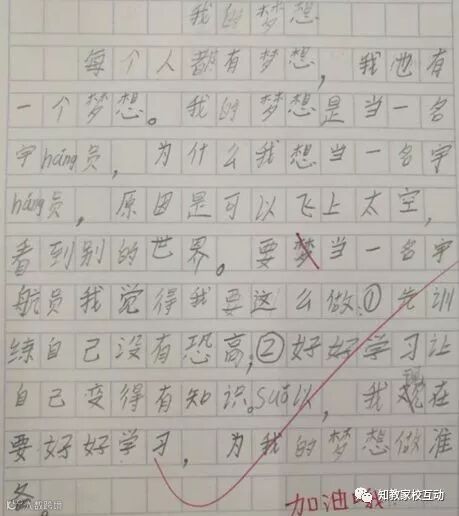 我的梦想
每个人都有梦想，我也有
一个梦想。我的梦想是当一名
宇háng员，为什么我想当一名宇
háng员，原因是可以飞上太空，
看到别的世界。要当一名宇
航员我觉得我要这么做：①先训
练自己没有恐高；②好好学习让
自己变得有知识。suǒ以，我现在
要好好学习，为我的梦想做准
备。
加油哦
知教家校互动